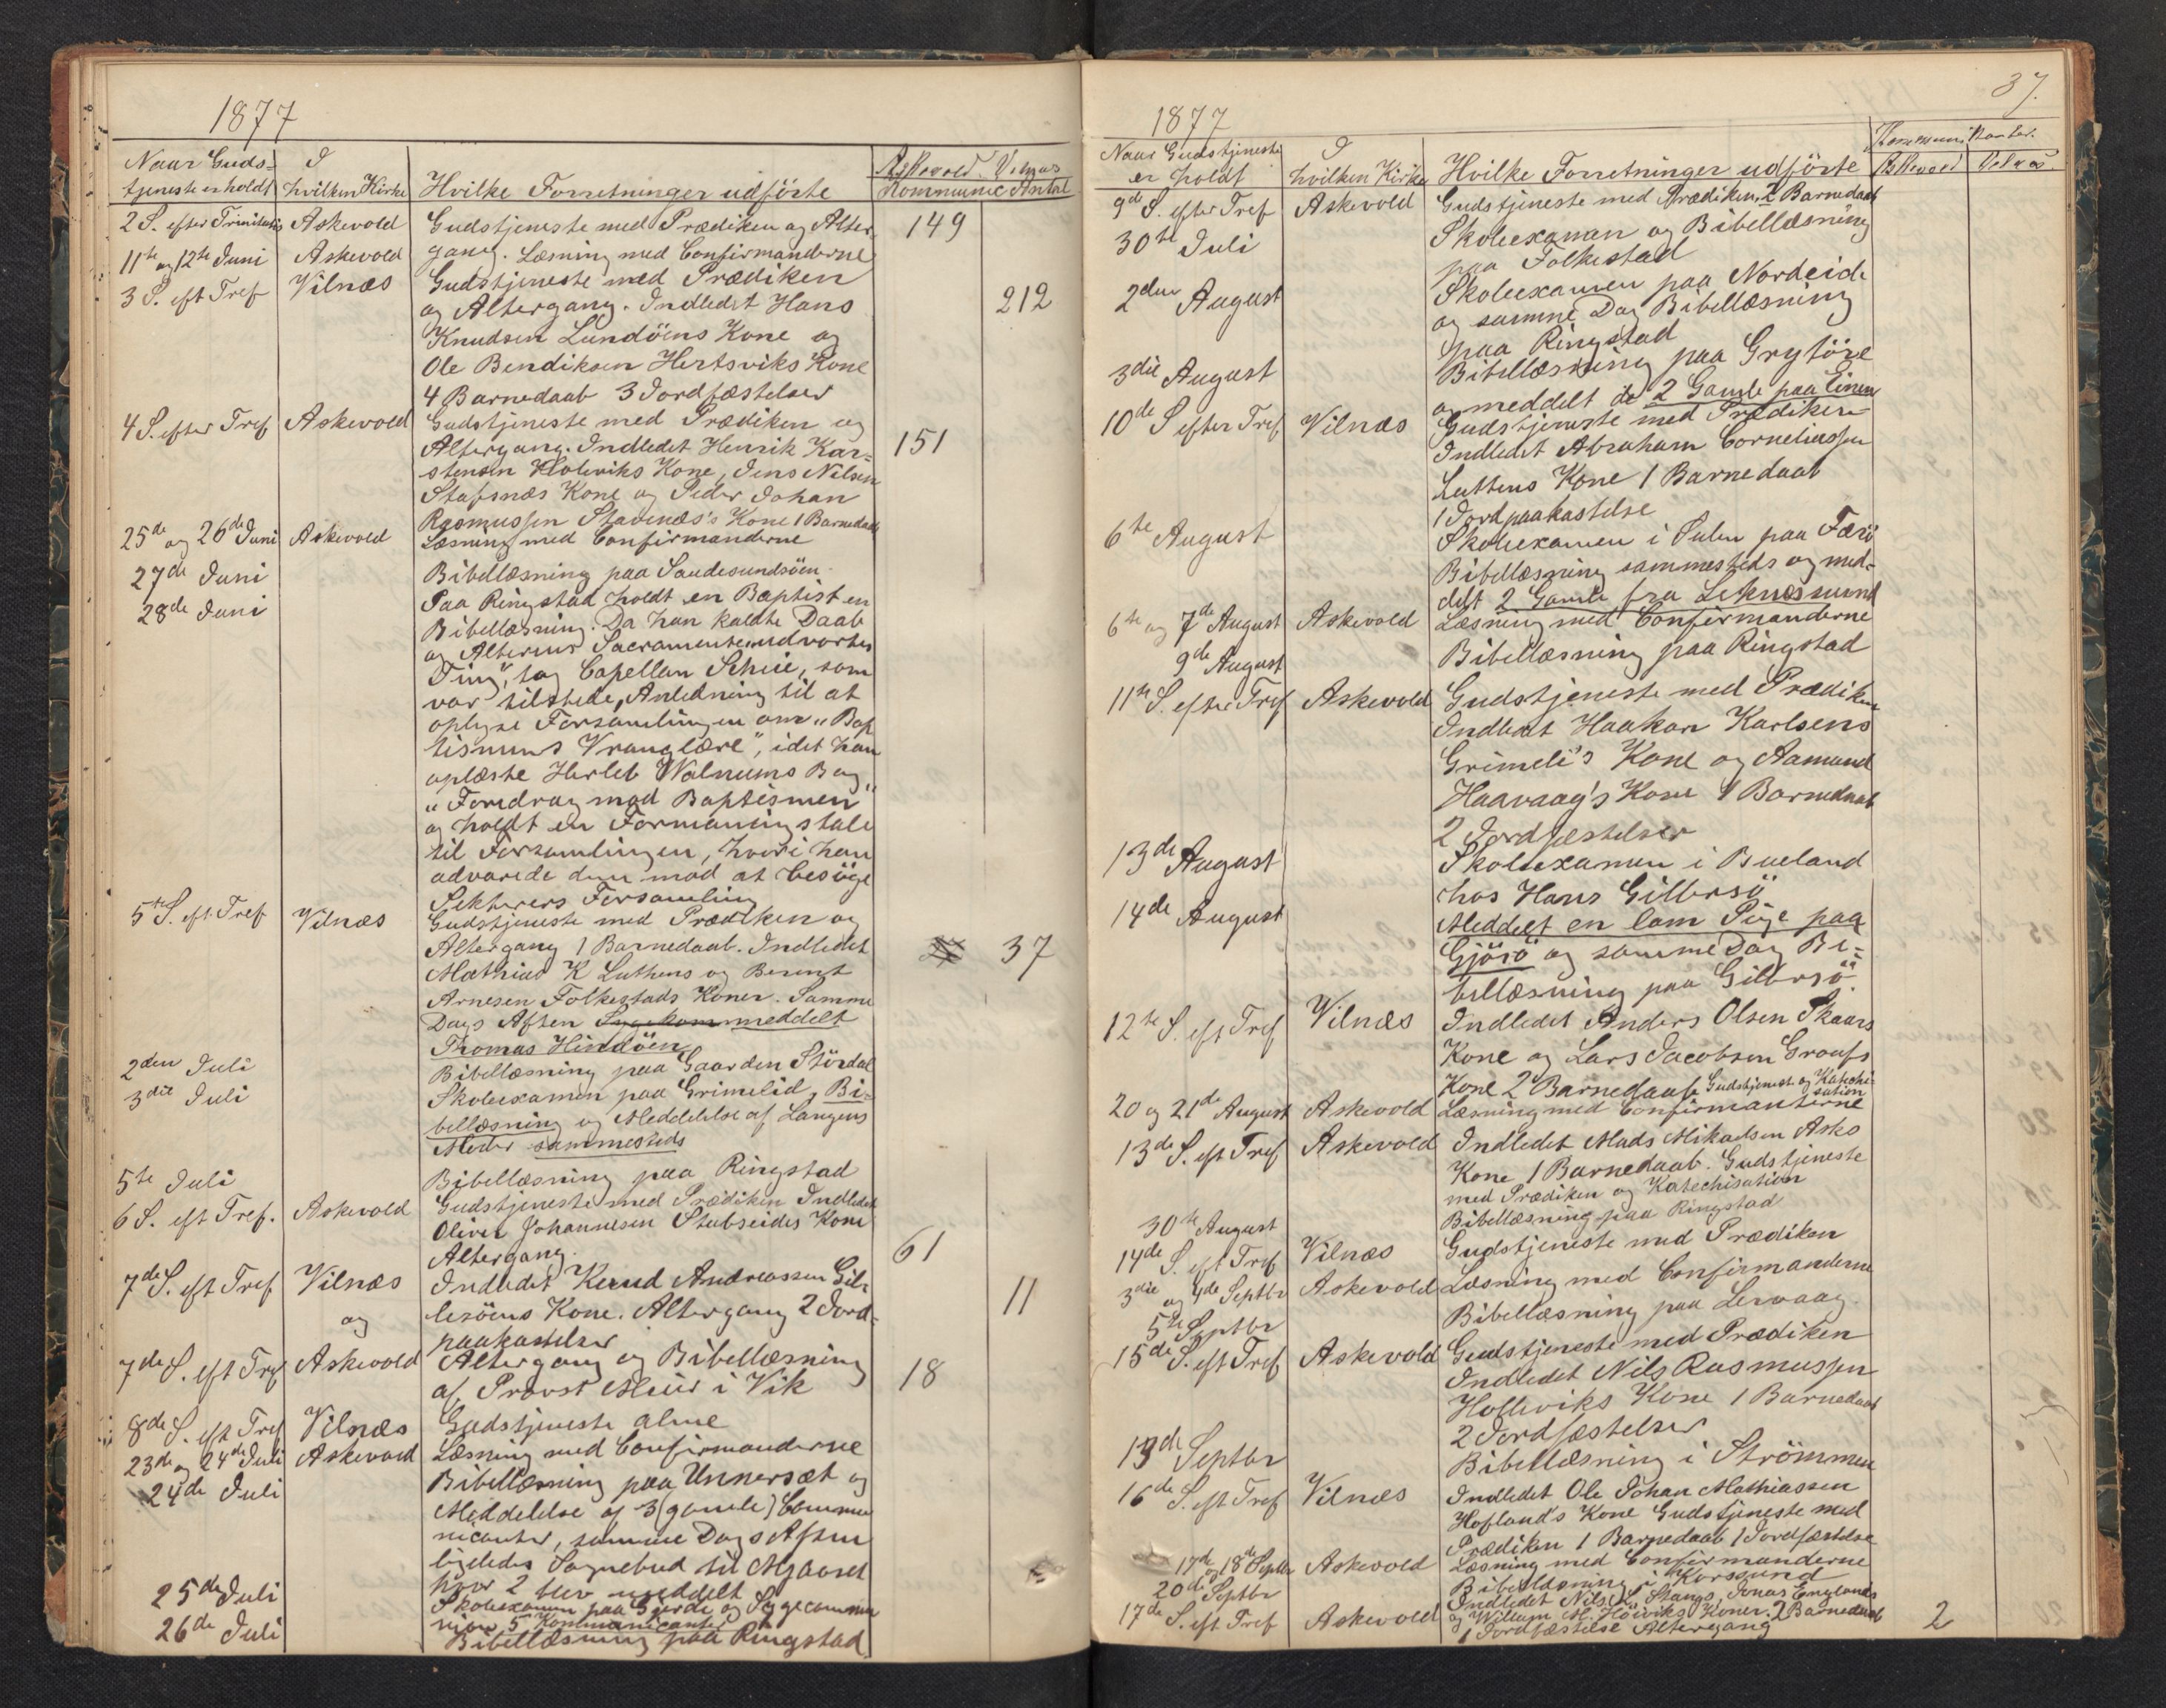 1877
Naar Guds=
tjeneste er holdt
I
hvilken Kirke
Hvilke Forretninger udförte
Askevold Vilnæs
Kommunic Antal
2 S. efter Trinitatis Askevold Gudstjeneste med Prædiken og Alter- 149
11te og 12te Juni Askevold gang. Læsning med Confirmanderne
3 S. eft Tref Vilnæs Gudstjeneste med Prædiken
og Altergang. Indledet Hans 212
Knudsen Lundöens Kone og
Ole Bendiksen Hertsviks Kone
4 Barnedaab 3 Jordfæstelser
4 S. efter Tref Askevold Gudstjeneste med Prædiken og
Altergang. Indledet Henrik Kar= 151
stensen Holeviks Kone, Jens Nilsen
Stafsnæs Kone og Peder Johan
Rasmussen Stavenæs's Kone 1 Barnedaab
25de og 26de Juni Askevold Læsning med Confirmanderne
27de Juni Bibellæsning paa Saudesundsöen
28de Juni Paa Ringstad holdt en Baptist en
Bibellæsning. Da han kaldte Daab
og Alterens Sacramenter udvortes
Ting", tog Capellan Scheie, som
var tilstede, Anledning til at
oplyse Forsamlingen om "Bap
tismens Vranglære", idet han
oplæste Herleb Walnums Bog,
"Foredrag mod Baptismen"
og holdt en Formaningstale
til Forsamlingen, hvori han
advarede dem mod at besöge
Sekterers Forsamling
5te S. eft Tref Vilnæs Gudstjeneste med Prædiken og
Altergang 1 Barnedaab. Indledet 37
Mathias K Luthens og Berent
Arnesen Folkestads Koner. Samme
Dags Aften Sygekom meddelt
Thomas Hindöen
2den Juli Bibellæsning paa Gaarden Stördal
3die Juli Skoleexamen paa Grimelid, Bi-
bellæsning og Meddelelse af
sammesteds
5te Juli Bibellæsning paa Ringstad
6 S. eft Tref. Askevold Gudstjeneste med Prædiken Indledet
Oliver Johannesen Stubseides Kone
Altergang. 61
7de S. eft Tref Vilnæs Indledet Knud Andreassen Gil-
og lesöens Kone. Altergang 2 Jord- 11
paakastelser
7de S. eft Tref Askevold Altergang og Bibellæsning
af Provst i Vik 18
8de S. eft Tref Vilnæs Gudstjeneste alene
23de og 24de Juli Askevold Læsning med Confirmanderne
24de Juli Bibellæsning paa Unnersæt og
Meddelelse af 3 (gamle) Commu
nicanter, samme Dags Aften
ligeledes Sognebud til
hvor 2 blev meddelt
25de Juli Skoleexamen paa Gjerde og Sygecommu
nion 5 Kommunicanter
26de Juli Bibellæsning paa Ringstad
37.
1877
Naar Gudstjeneste
er holdt
I
hvilken Kirke
Hvilke Forretninger udförte
Kommunikanter.
Askevold Vilnæs
9de S. efter Tref Askevold Gudstjeneste med Prædiken, 2 Barnedaab
30te Juli Skoleexamen og Bibellæsning
paa Folkestad
2den August Skoleexamen paa Nordeide
og samme Dag Bibellæsning
paa Ringstad
3die August Bibellæsning paa Grytöre
og meddelt de 2 Gamle paa Einen
10de S efter Tref Vilnæs Gudstjeneste med Prædiken
Indledet Abraham Corneliussen
Luttens Kone 1 Barnedaab
1 Jordpaakastelse
6te August Skoleexamen i Sulen paa Færö
Bibellæsning sammesteds og med-
delt 2 Gamle fra Leknessund
6te og 7de August Askevold Læsning med Confirmanderne
9de August Bibellæsning paa Ringstad
11te S. efter Tref Askevold Gudstjeneste med Prædiken
Indledet Haakon Karlsens
Grimeli's Kone og Aamund
Haavaag's Kone 1 Barnedaab
2 Jordfæstelser
13de August Skoleexamen i Bueland
hos Hans Gillersö
14de August Meddelt en lam Pige paa
Gjörö og samme Dag Bi-
bellæsning paa Gillersö.
12te S. eft Tref Vilnæs Indledet Anders Olsen Skaars
Kone og Lars Jacobsen Grøufs
Kone 2 Barnedaab Gudstjenest og Katechi-
sation
20 og 21de August Askevold Læsning med Confirmanterne
13de S. eft Tref Askevold Indledet Mads Mikadsen Asko
Kone 1 Barnedaab. Gudstjeneste
med Prædiken og Katechisation
30te August Bibellæsning paa Ringstad
14de S. eft Tref Vilnæs Gudstjeneste med Prædiken
3die og 4de Septbr Askevold Læsning med Confirmanderne
5te Septbr Bibellæsning paa Lervaag
15de S. eft Tref Askevold Gudstjeneste med Prædiken
Indledet Nils Rasmussen
Holleviks Kone 1 Barnedaab
2 Jordfæstelser
13de Septbr Bibellæsning i Strömmen
16de S. eft Tref Vilnæs Indledet Ole Johan Mathiassen
Hoflands Kone Gudstjeneste med
Prædiken 1 Barnedaab 1 Jordfæstelse
17de 18de Septbr Askevold Læsning med Confirmanderne
20de Septbr Bibellæsning i Korssund
17de S. eft Tref Askevold Indledet Nils S. Stangs, Jonas Englands
og Willum M. Höiviks Koner. 2 Barnedaab
1 Jordfæstelse Altergang 2